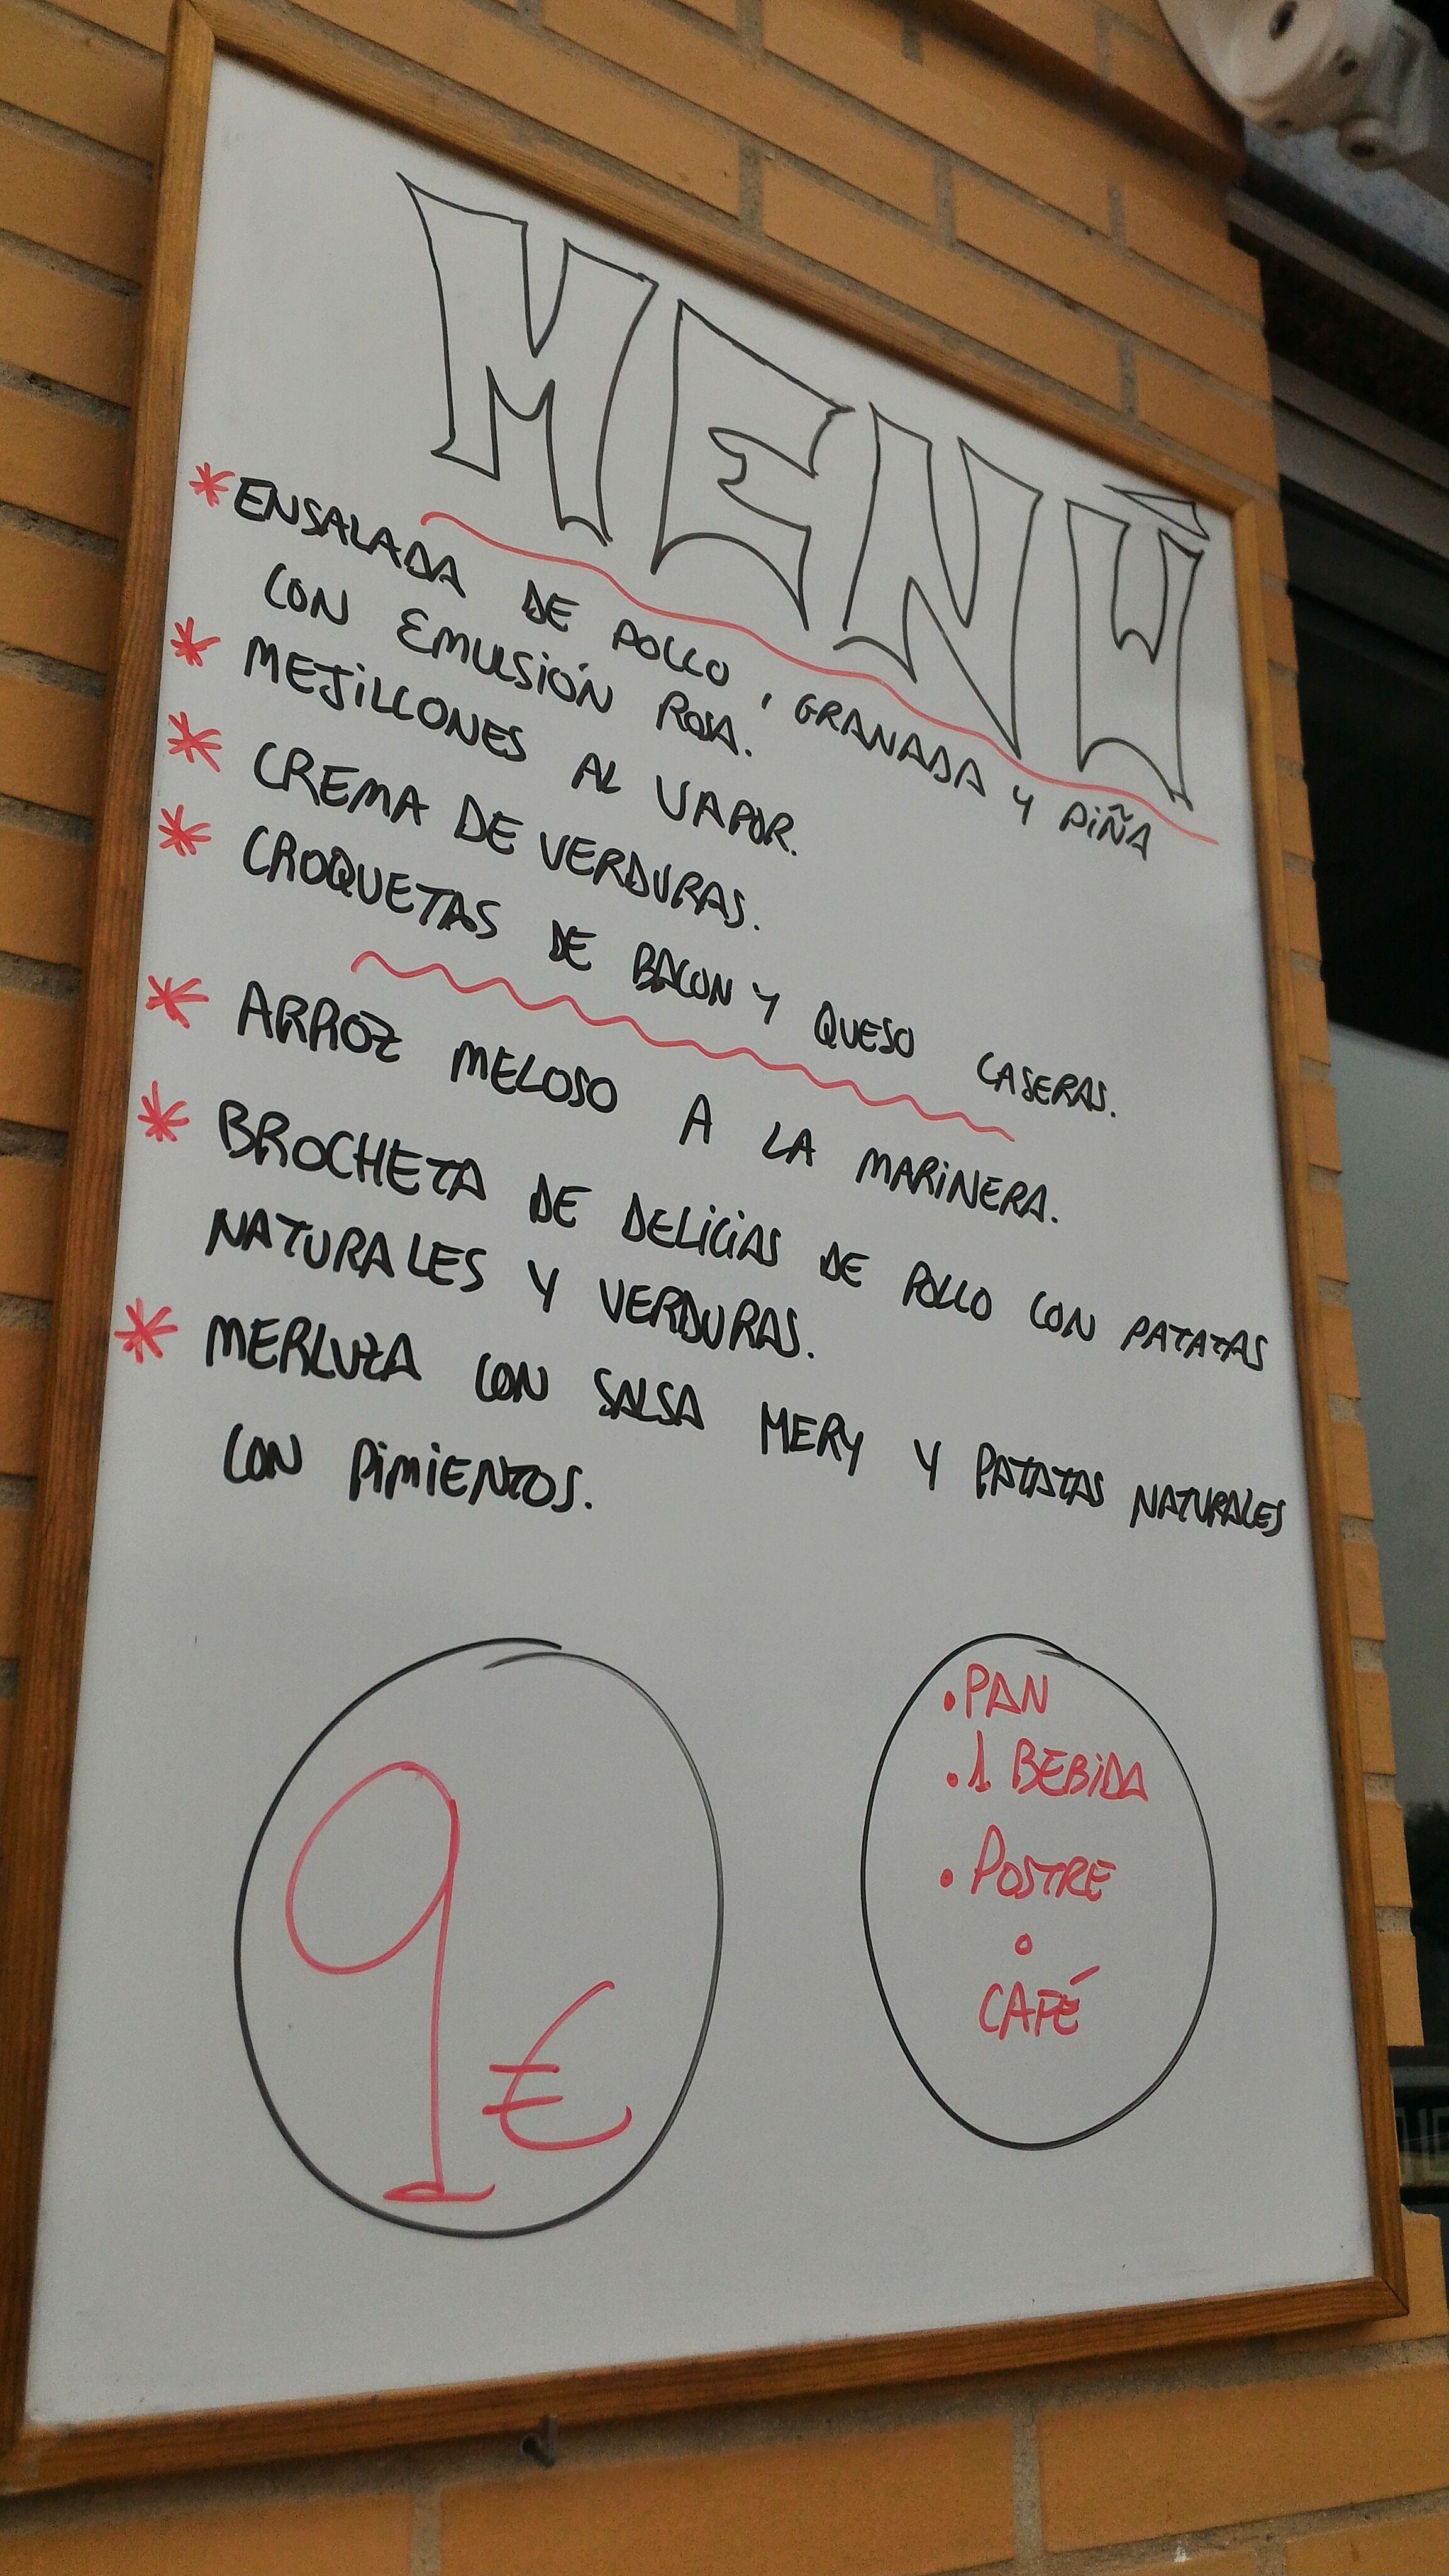 MENÚ
* ENSALADA DE POLLO, GRANADA Y PIÑA
CON EMULSIÓN ROSA.
* MEJILLONES AL VAPOR.
* CREMA DE VERDURAS.
* CROQUETAS DE BACON Y QUESO CASERAS.
* ARROZ MELOSO A LA MARINERA.
* BROCHETA DE DELICIAS DE POLLO CON PATATAS
NATURALES Y VERDURAS.
* MERLUZA CON SALSA MERY Y PATATAS NATURALES
CON PIMIENTOS.
9 €
• PAN
• 1 BEBIDA
• POSTRE
o
CAFÉ